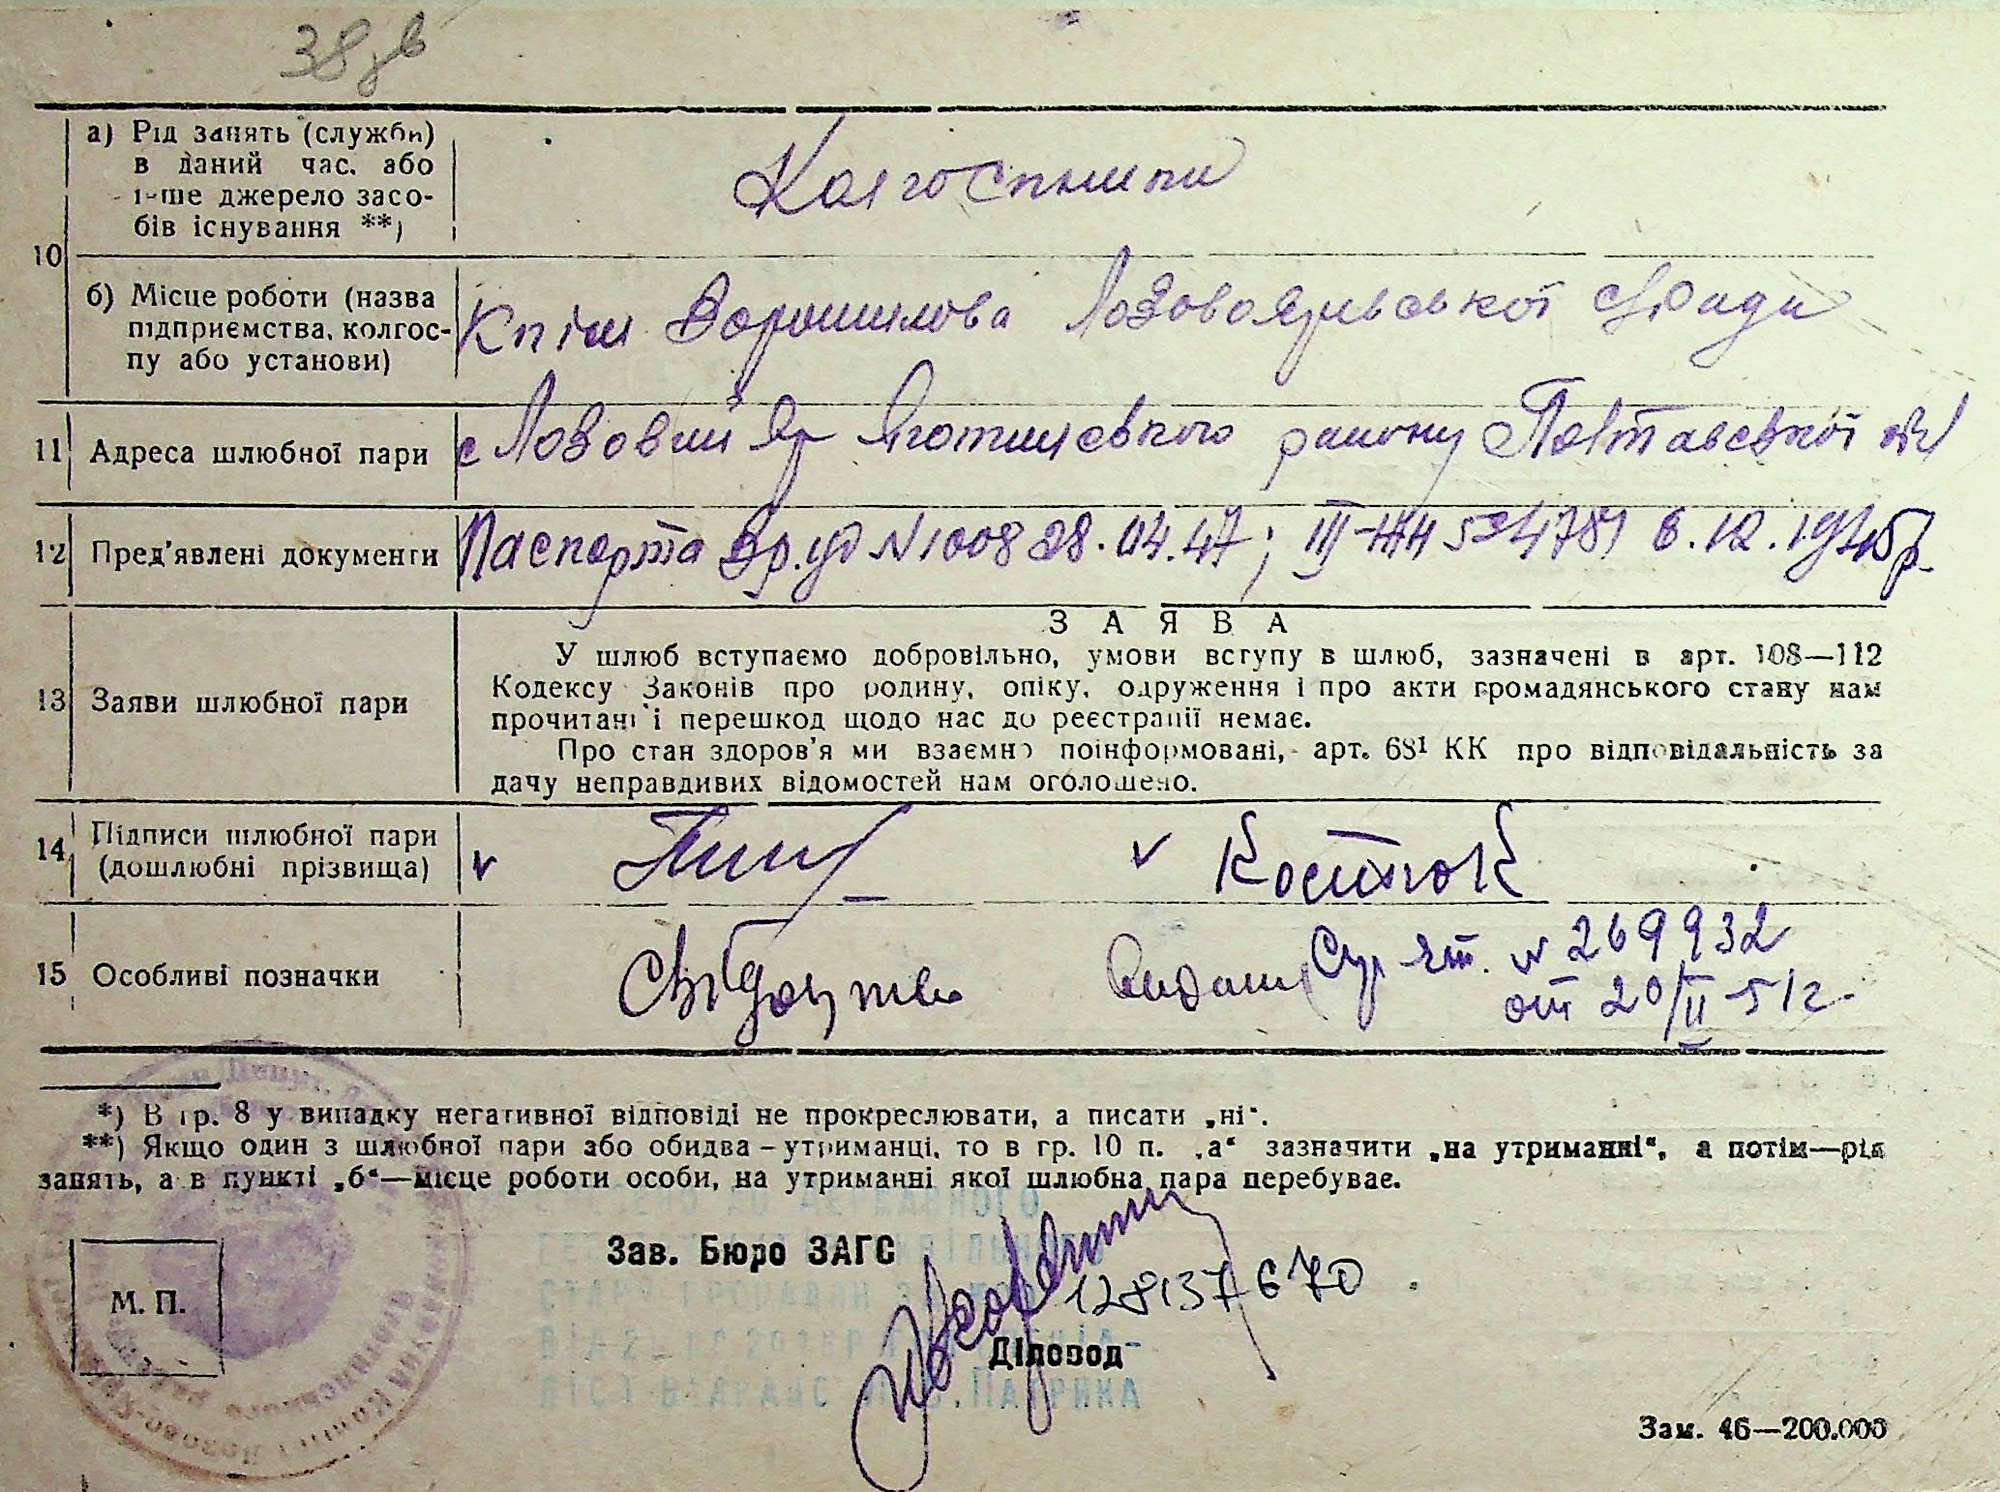 38зв
10
а) Рід занять (служби)
в даний час, або
інше джерело засо-
бів існування **)
Колгоспники
б) Місце роботи (назва
підприємства, колгос-
пу або установи)
К-п ім Ворошилова Лозовояривської с/Ради
11 Адреса шлюбної пари
с Лозовий Яр Яготинського району Полтавської обл
12 Пред'явлені документи
Паспорта № 1008 28.04.47; III 8.12.1945р.
13 Заяви шлюбної пари
ЗАЯВА
У шлюб вступаємо добровільно, умови вступу в шлюб, зазначені в арт. 108—112
Кодексу Законів про родину, опіку, одруження і про акти громадянського стану нам
прочитані і перешкод щодо нас до реєстрації немає.
Про стан здоров'я ми взаємно поінформовані, арт. 68¹ КК про відповідальність за
дачу неправдивих відомостей нам оголошено.
14 Підписи шлюбної пари
(дошлюбні прізвища)
v v Костюк
15 Особливі позначки
Свідоцтво № 269932
от 20/II 51г.
*) В гр. 8 у випадку негативної відповіді не прокреслювати, а писати „ні“.
**) Якщо один з шлюбної пари або обидва – утриманці, то в гр. 10 п. „а“ зазначити „на утриманні“, а потім—рід
занять, а в пункті „б“—місце роботи особи, на утриманні якої шлюбна пара перебуває.
Зав. Бюро ЗАГС
128137670
М. П.
Діловод
Зам. 46—200.000